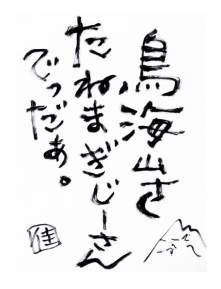 鳥海山さ
たねまぎじーさん
でっだぁ。
佳